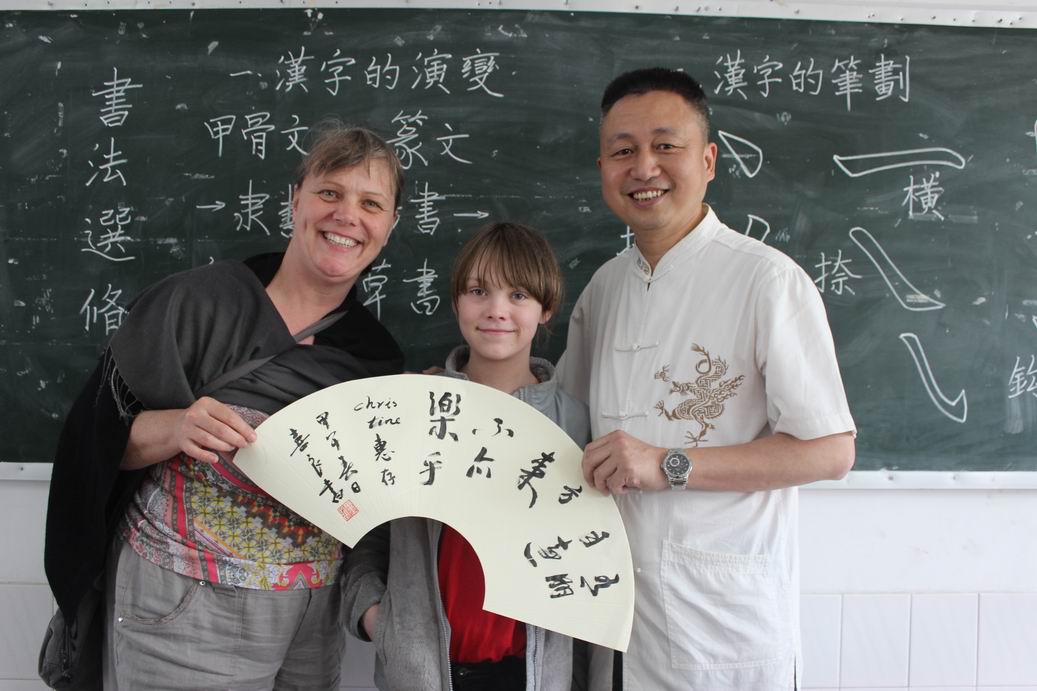 書法選修
一.漢字的演變
甲骨文
篆文
→隶書
書→
草書
漢字的筆劃
橫
捺
有朋
自遠
方來
不亦
樂乎
chris
tine 惠存
甲午春日
喜良書